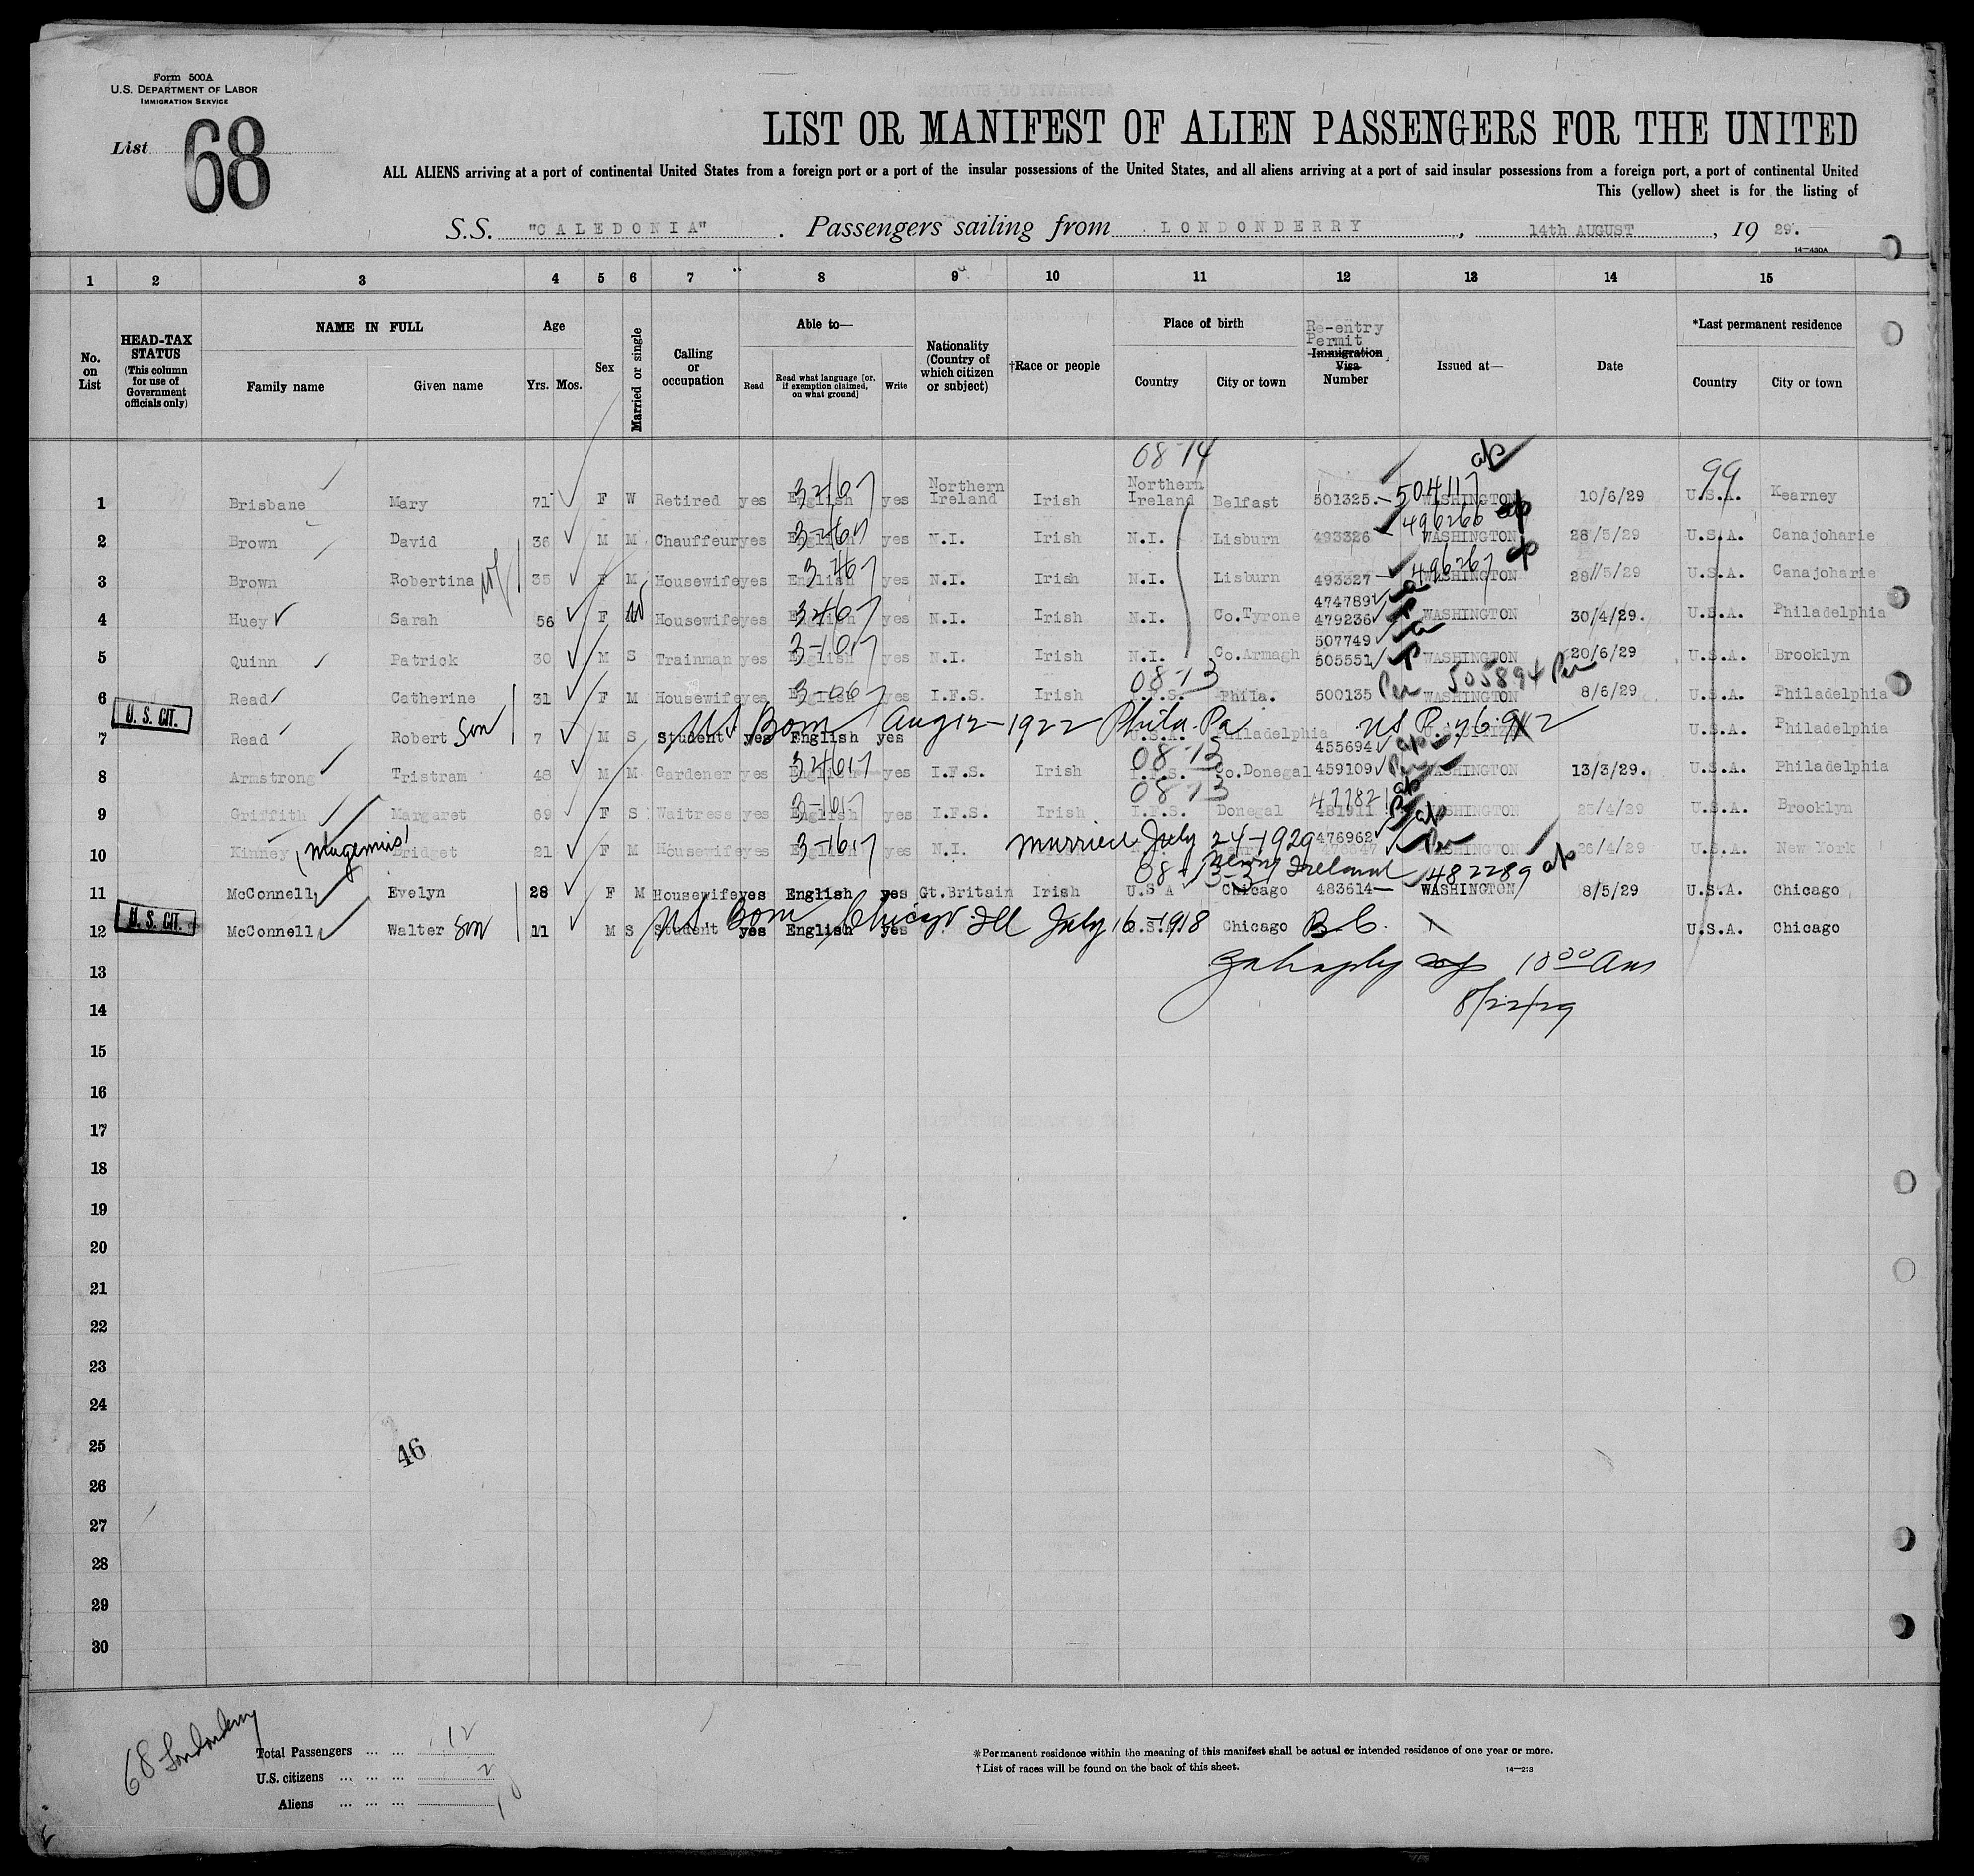 Form 500A
U.S. DEPARTMENT OF LABOR
IMMIGRATION SERVICE
List 68
LIST OR MANIFEST OF ALIEN PASSENGERS FOR THE UNITED
ALL ALIENS arriving at a port of continental United States from a foreign port or a port of the insular possessions of the United States, and all aliens arriving at a port of said insular possessions from a foreign port, a port of continental United
This (yellow) sheet is for the listing of
S.S. "CALEDONIA" . Passengers sailing from LONDONDERRY , 14th AUGUST , 19 29.
14—430A
1 2 3 4 5 6 7 8 9 10 11 12 13 14 15
No. on List
HEAD-TAX STATUS (This column for use of Government officials only)
NAME IN FULL
Family name Given name
Age
Yrs. Mos.
Sex
Married or single
Calling or occupation
Able to—
Read Read what language [or, if exemption claimed, on what ground] Write
Nationality (Country of which citizen or subject)
†Race or people
Place of birth
Country City or town
Re-entry Permit Immigration Visa Number
Issued at—
Date
*Last permanent residence
Country City or town
08-14 99
1 Brisbane Mary 71 F W Retired yes English 3-267 yes Northern Ireland Irish Northern Ireland Belfast 501325.— 504117 WASHINGTON 10/6/29 U.S.A. Kearney
2 Brown David 36 M M Chauffeur yes English yes N.I. Irish N.I. Lisburn 493326 496266 WASHINGTON 28/5/29 U.S.A. Canajoharie
3 Brown Robertina Wf 35 F M Housewife yes English yes N.I. Irish N.I. Lisburn 493327 — 496267 WASHINGTON 28/5/29 U.S.A. Canajoharie
4 Huey Sarah 56 F W Housewife yes English yes N.I. Irish N.I. Co.Tyrone 474789 479236 WASHINGTON 30/4/29. U.S.A. Philadelphia
5 Quinn Patrick 30 M S Trainman yes English yes N.I. Irish N.I. Co.Armagh 507749 505551 WASHINGTON 20/6/29 U.S.A. Brooklyn
08-13
6 Read Catherine 31 F M Housewife yes English yes I.F.S. Irish I.F.S. Phila. 500135 Per 505894 Per WASHINGTON 8/6/29 U.S.A. Philadelphia
U. S. CIT.
7 Read Robert Son 7 M S Student yes English yes US Born Aug 12-1922 Phila. Pa U.S.A. Philadelphia U.S.A. Philadelphia
08-13
8 Armstrong Tristram 48 M M Gardener yes English yes I.F.S. Irish I.F.S. Co.Donegal 455694 459109 WASHINGTON 13/3/29. U.S.A. Philadelphia
08-13
9 Griffith Margaret 69 F S Waitress yes English yes I.F.S. Irish I.F.S. Donegal 481911 WASHINGTON 25/4/29 U.S.A. Brooklyn
10 Kinney Bridget 21 F M Housewife yes English yes N.I. married July 24-1929 476962 Per WASHINGTON 26/4/29 U.S.A. New York
Ireland 482289
11 McConnell Evelyn 28 F M Housewife yes English yes Gt.Britain Irish U.S A Chicago 483614— WASHINGTON 8/5/29 U.S.A. Chicago
U. S. CIT.
12 McConnell Walter Son 11 M S Student yes English yes US Born Chicago Ill July 16-1918 U.S.A. Chicago B.C. U.S.A. Chicago
13
10 00 Am
14
8/22/29
15
16
17
18
19
20
21
22
23
24
25
46
26
27
28
29
30
68 Londonderry
Total Passengers ... ... 12
U.S. citizens ... ... ... 2
Aliens ... ... ... 10
*Permanent residence within the meaning of this manifest shall be actual or intended residence of one year or more.
†List of races will be found on the back of this sheet.
14—213